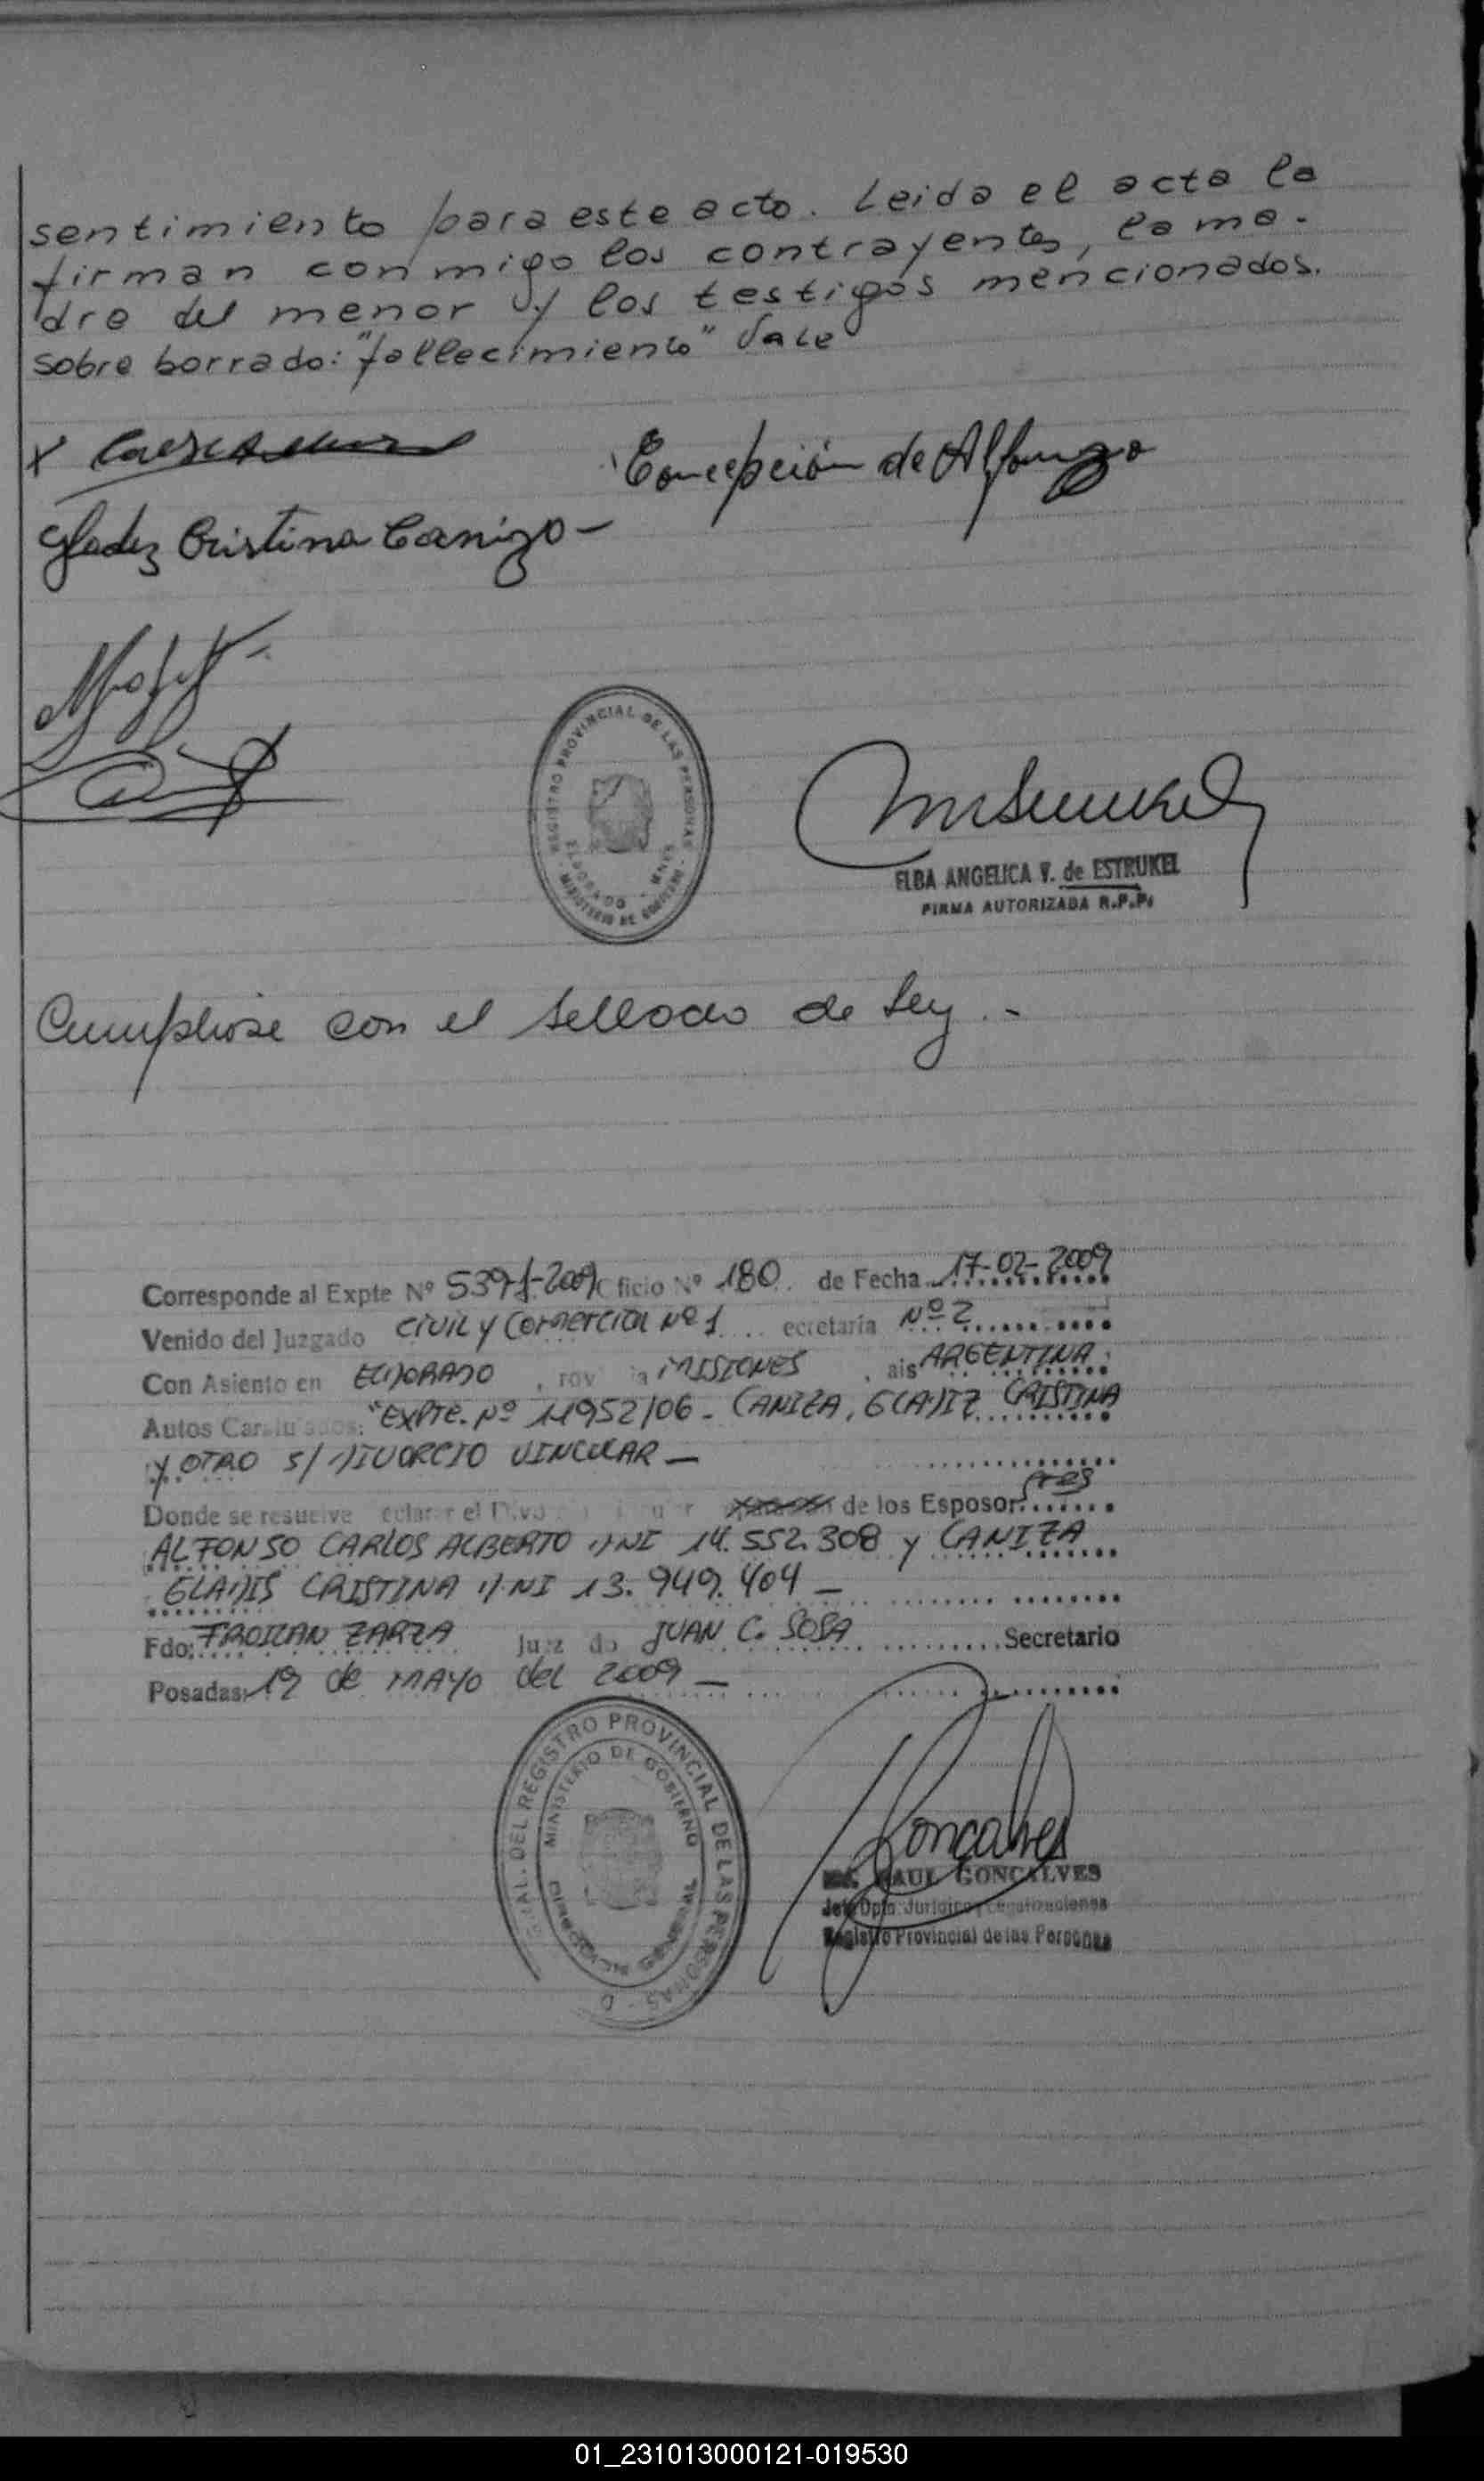 sentimiento para este acto. Leida el acta la
firman conmigo los contrayentes, la ma-
dre del menor y los testigos mencionados.
sobre borrado: "fallecimiento" Vale
X
Concepción de Alfonzo
Gladiz Cristina Caniza -
REGISTRO PROVINCIAL DE LAS PERSONAS
ELDORADO - MNES
MINISTERIO DE GOBIERNO
ELBA ANGELICA V. de ESTRUKEL
FIRMA AUTORIZADA R.P.P.
Cumpliose con el sellado de ley.-
Corresponde al Expte Nº 539-1-2009 ficio Nº 180 de Fecha 17-02-2009
Venido del Juzgado CIVIL y Comercial Nº 1 ecretaría Nº 2
Con Asiento en ELDORADO, rov ia MISIONES, ais ARGENTINA
Autos Caratulados: "EXPTE. Nº 11952/06 - CANIZA, GLADIZ CRISTINA
y OTRO S/ DIVORCIO VINCULAR -
Donde se resuelve eclarar el Divo de los Esposos
ALFONSO CARLOS ALBERTO DNI 14.552.308 y CANIZA
GLADIS CRISTINA D.NI 13.949.404 -
Fdo: FROILAN ZARZA Juez do JUAN C. SOSA Secretario
Posadas: 19 de MAYO del 2009 -
DEL REGISTRO PROVINCIAL DE LAS PERSONAS
MINISTERIO DE GOBIERNO
DIRECCION GENERAL
Goncalves
RAUL GONCALVES
Jefe Dpto. Jurídico y Legalizaciones
Registro Provincial de las Personas
01_231013000121-019530